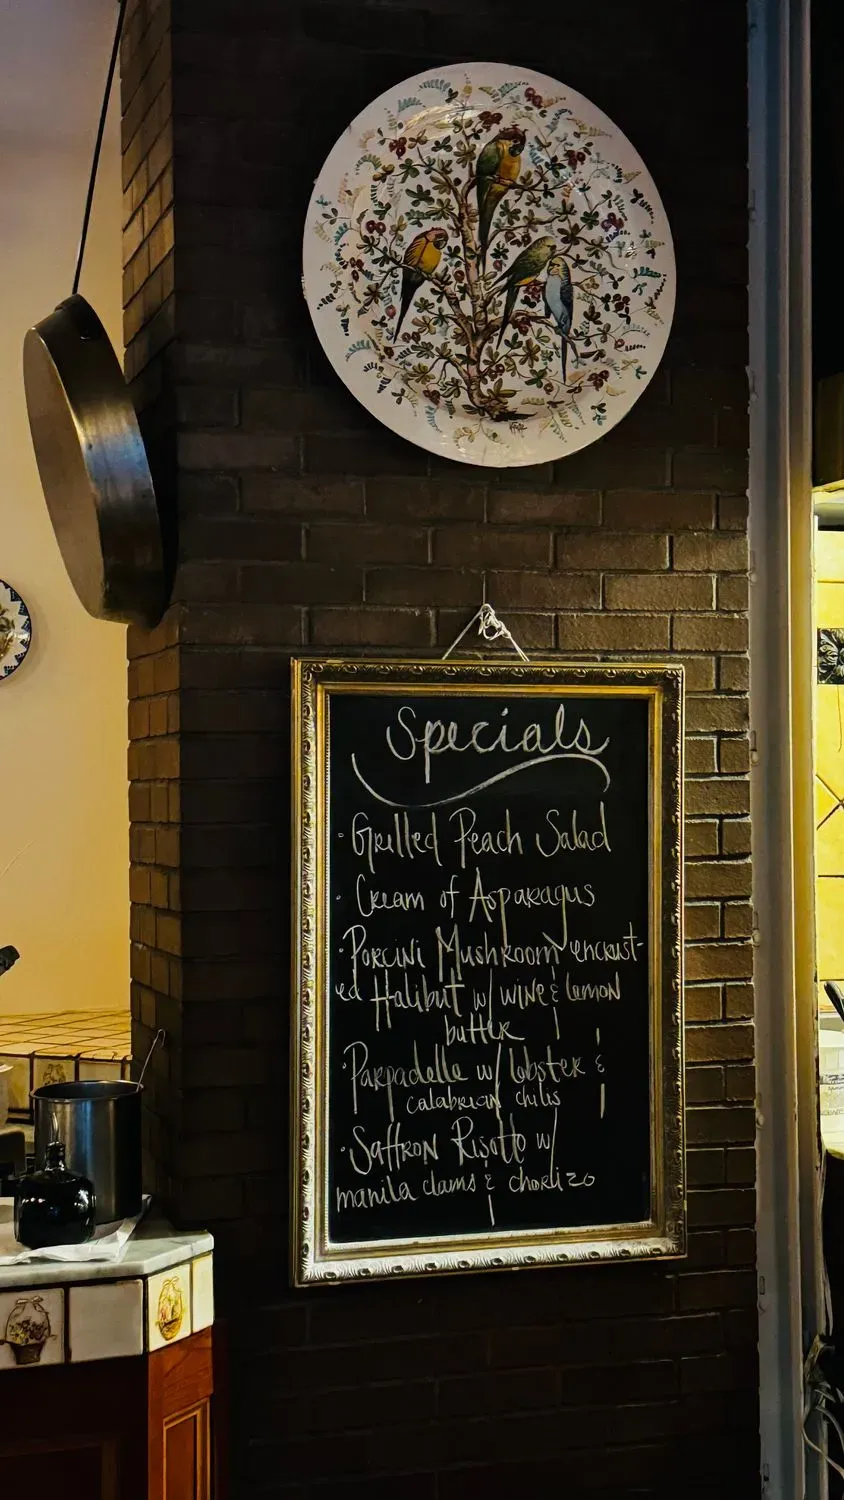 Specials
· Grilled Peach Salad
· Cream of Asparagus
· Porcini Mushroom encrust-
ed Halibut w/ wine & lemon
butter
· Parpadelle w/ lobster &
calabrian chilis
· Saffron Risotto w/
manila clams & chorizo